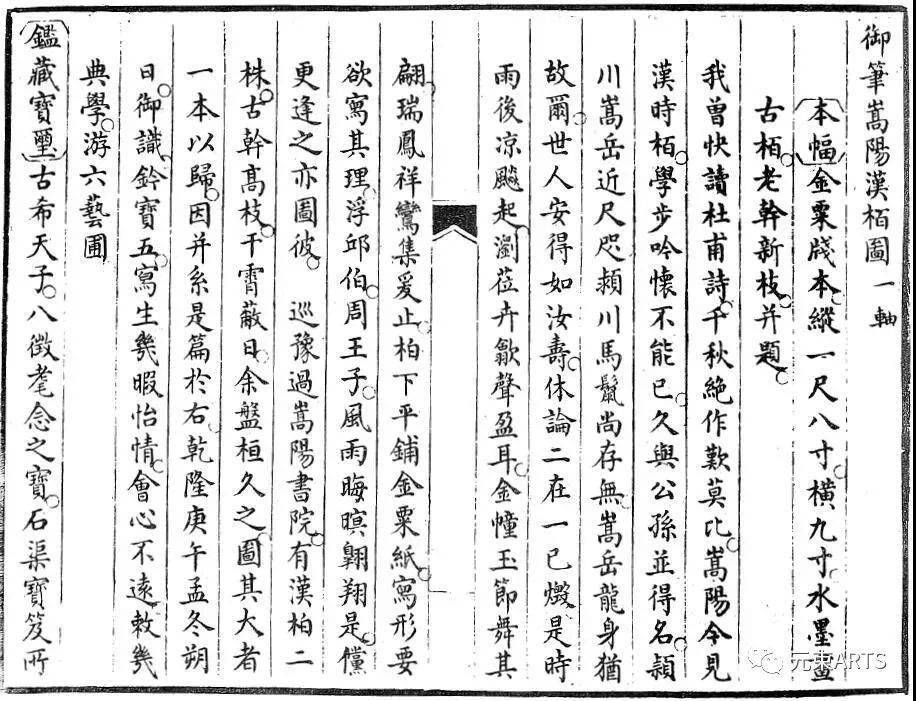 御筆嵩陽漢栢圖一軸
本幅金粟牋本縱一尺八寸横九寸水墨畫
古栢老幹新枝并題
我曾快讀杜甫詩千秋絶作歎莫比嵩陽今見
漢時栢學步吟懷不能已久與公孫並得名潁
川嵩岳近尺咫潁川馬鬛尚存無嵩岳龍身猶
故爾世人安得如汝壽休論二在一已燬是時
雨後涼颸起瀏莅卉歙聲盈耳金幢玉節舞其
翩瑞鳳祥鸞集爰止柏下平鋪金粟紙寫形要
欲寫其理浮邱伯周王子風雨晦暝翺翔是儻
更逢之亦圖彼 巡豫過嵩陽書院有漢柏二
株古幹高枝干霄蔽日余盤桓久之圖其大者
一本以歸因并系是篇於右乾隆庚午孟冬朔
日御識鈐寶五寫生幾暇怡情會心不遠敕幾
典學游六藝圃
鑑藏寶璽古希天子八徵耄念之寶石渠寶笈所
元朿ARTS